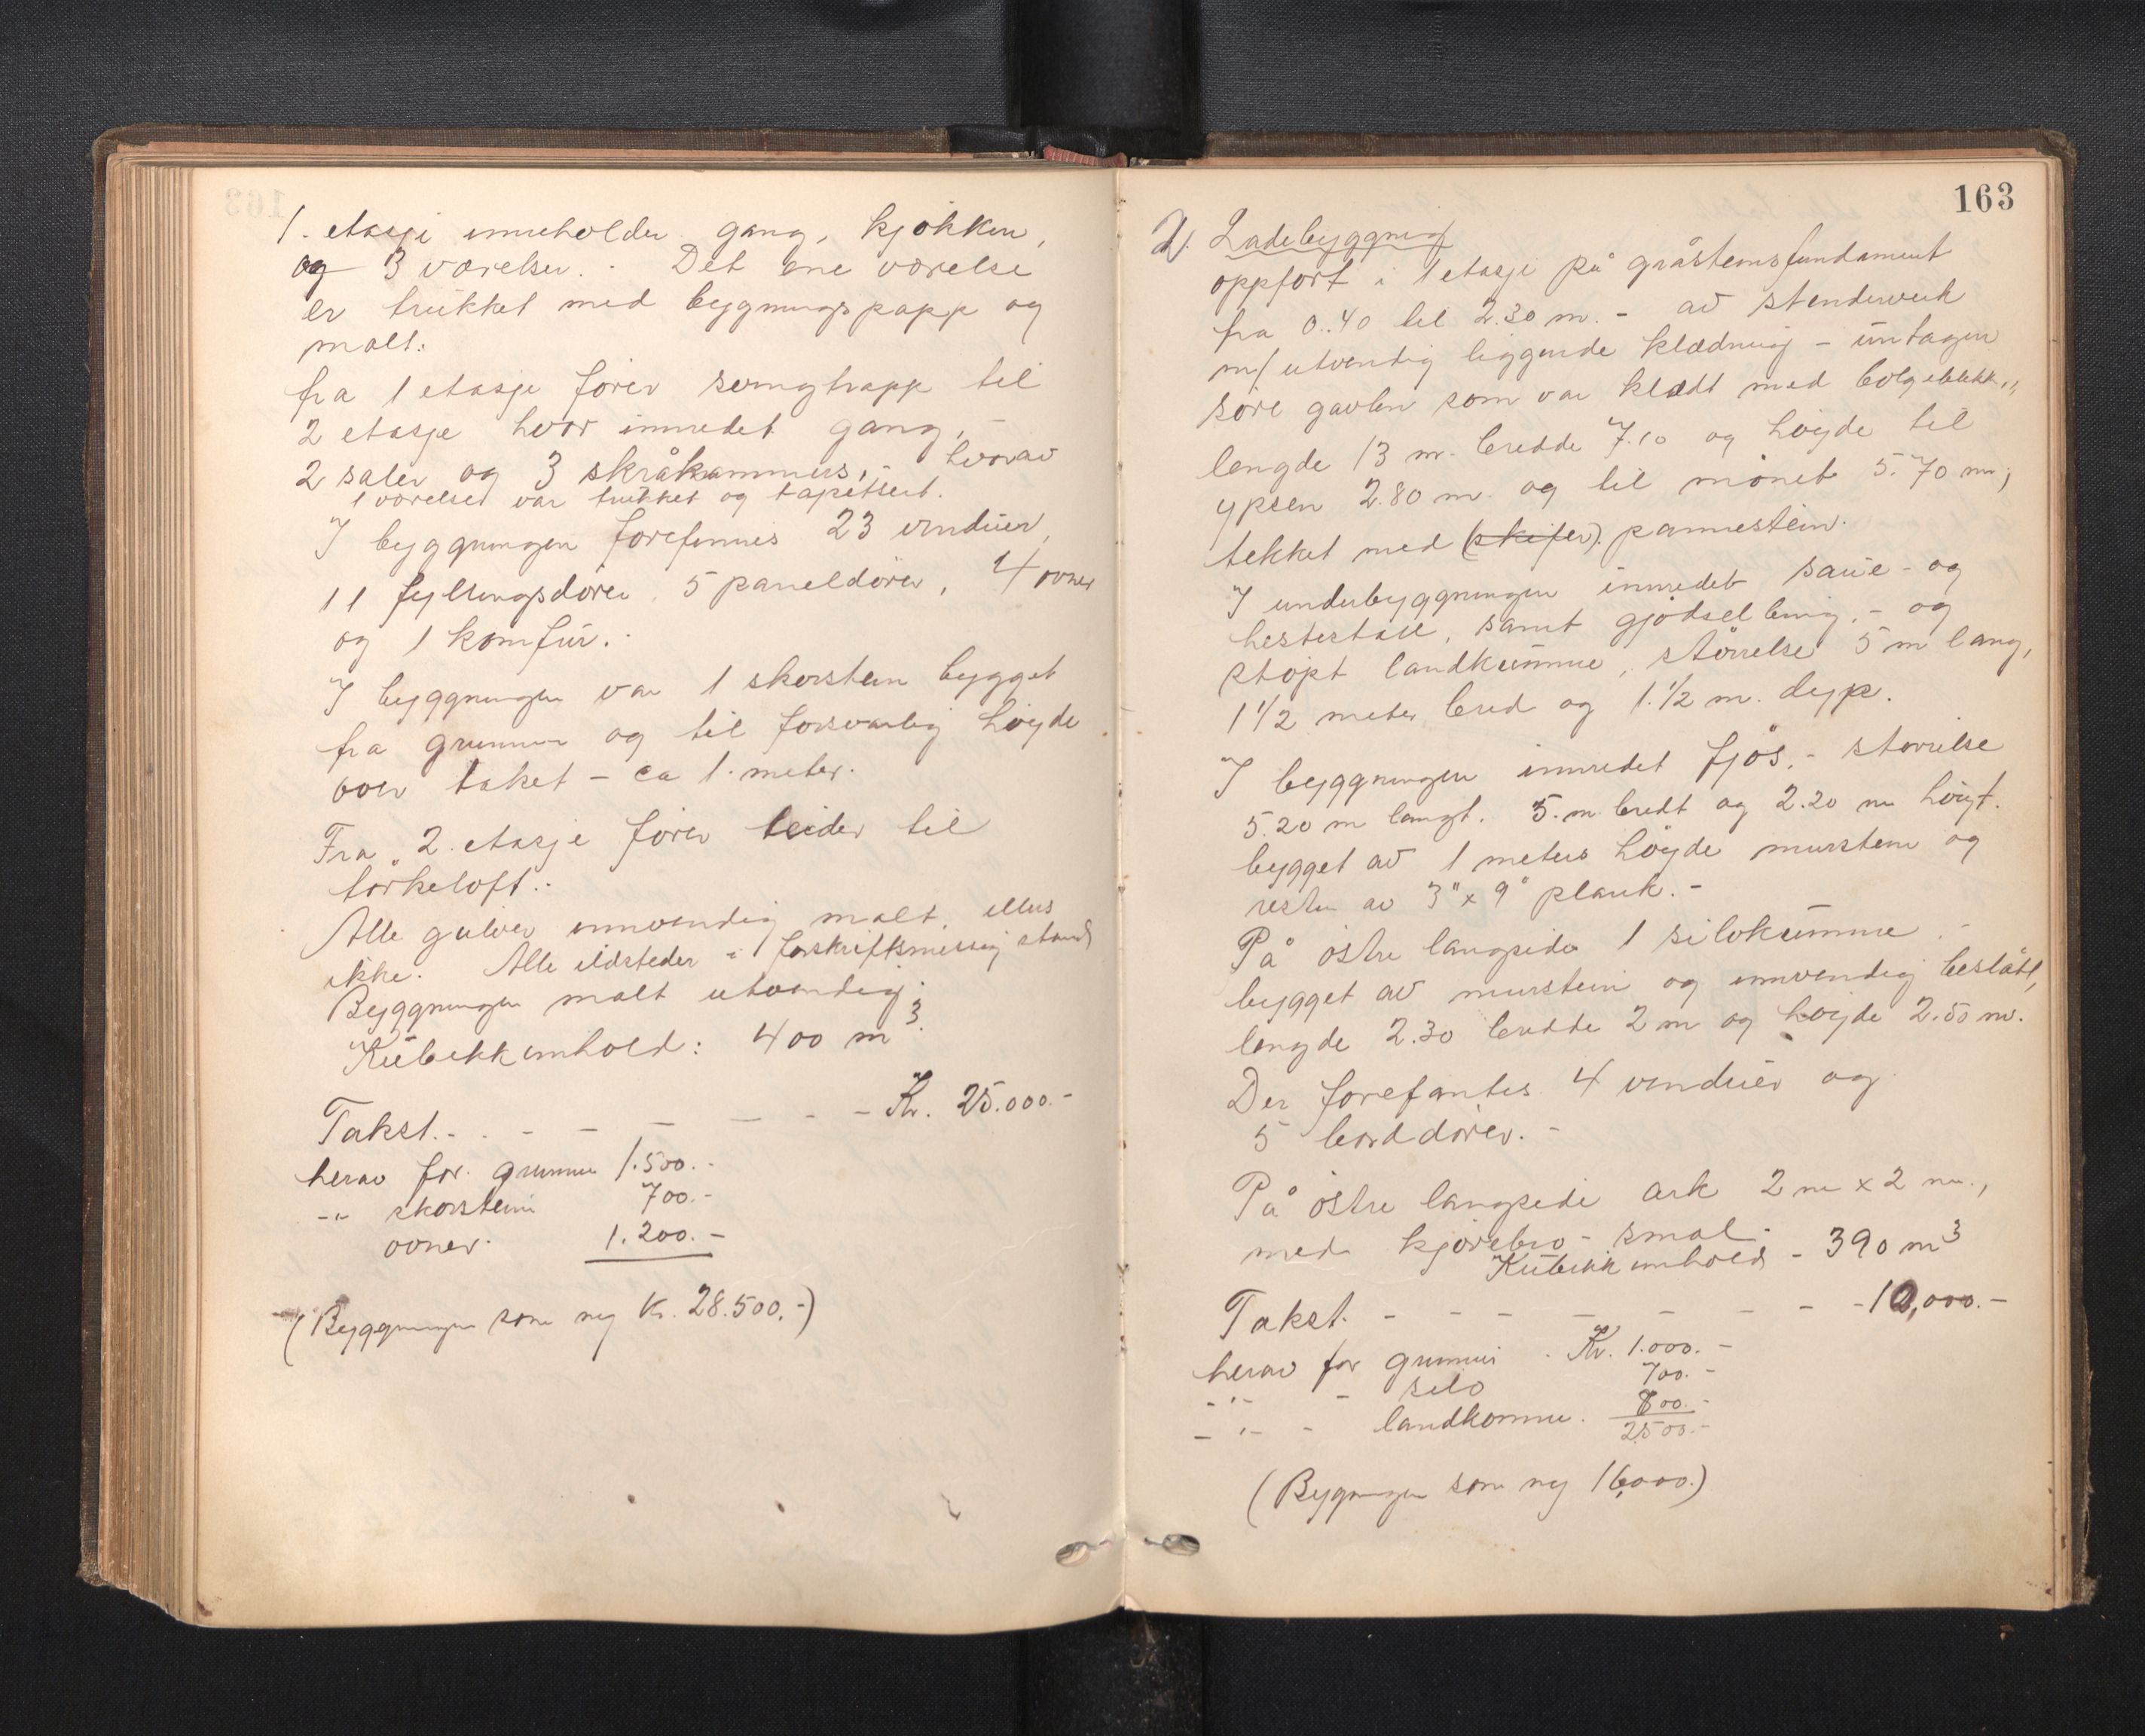 1. etasje inneholder gang, kjøkken,
og 3 værelser. - Det ene værelse
er trukket med bygningspapp og
malt.
fra 1 etasje fører svingtrapp til
2 etasje hvor innredet gang, -
2 saler og 3 skråkammers, - hvorav
1 værelset var trukket og tapetsert.
I byggningen forefinnes 23 vinduer,
11 fyllingsdører, 5 paneldører, 4 ovner
og 1 komfur. -
I byggningen var 1 skorstein bygget
fra grunnen og til forsvarlig høyde
over taket - ca 1. meter.
Fra 2. etasje fører leider til
tørkeloft. -
Alle gulver innvendig malt, ellers
ikke. Alle ildsteder i forskriftsmessig stand
Byggningen malt utvendig.
Kubikkinnhold: 400 m³.
Takst. - - - - - - - Kr. 25.000.-
herav for grunnen 1.500.-
-"- skorstein 700.-
ovner. 1.200.-
(Byggningen som ny Kr. 28.500.-)
163
2. Ladebyggning
oppført i 1 etasje på gråsteinsfundament
fra 0.40 til 2.30 m. - av stenderverk
m/ utvendig liggende klædning - untagen
søre gavlen som var klædt med bølgeblekk,,
lengde 13 m. bredde 7.10 og høyde til
ypsen 2.80 m. og til mønet 5.70 m,
tekket med (skifer). pannestein.
I underbyggningen innredet saue- og
hestestall, samt gjødselbing, - og
støpt landkumme, størrelse 5 m lang,
1 1/2 meter bred og 1.1/2 m. dyp.
I byggningen innredet fjøs, - størrelse
5.20 m langt. 5. m bredt og 2.20 m høigt.
bygget av 1 meters høyde murstein og
resten av 3" x 9" plank. -
På østre langside 1 silokumme -
bygget av murstein og innvendig beslått,
lengde 2.30 bredde 2 m og høyde 2.50 m.
Der forefantes 4 vinduer og
5 borddører. -
På østre langside ark 2 m x 2 m.,
med kjørebro - smal. -
Kubikkinnhold - 390 m³
Takst. - - - - - - - - 10,000.-
herav for grunnen . Kr. 1.000.-
-"- - silo 700.-
-"- - landkomme. 800.-
2500.-
(Bygningen som ny 16,000.)